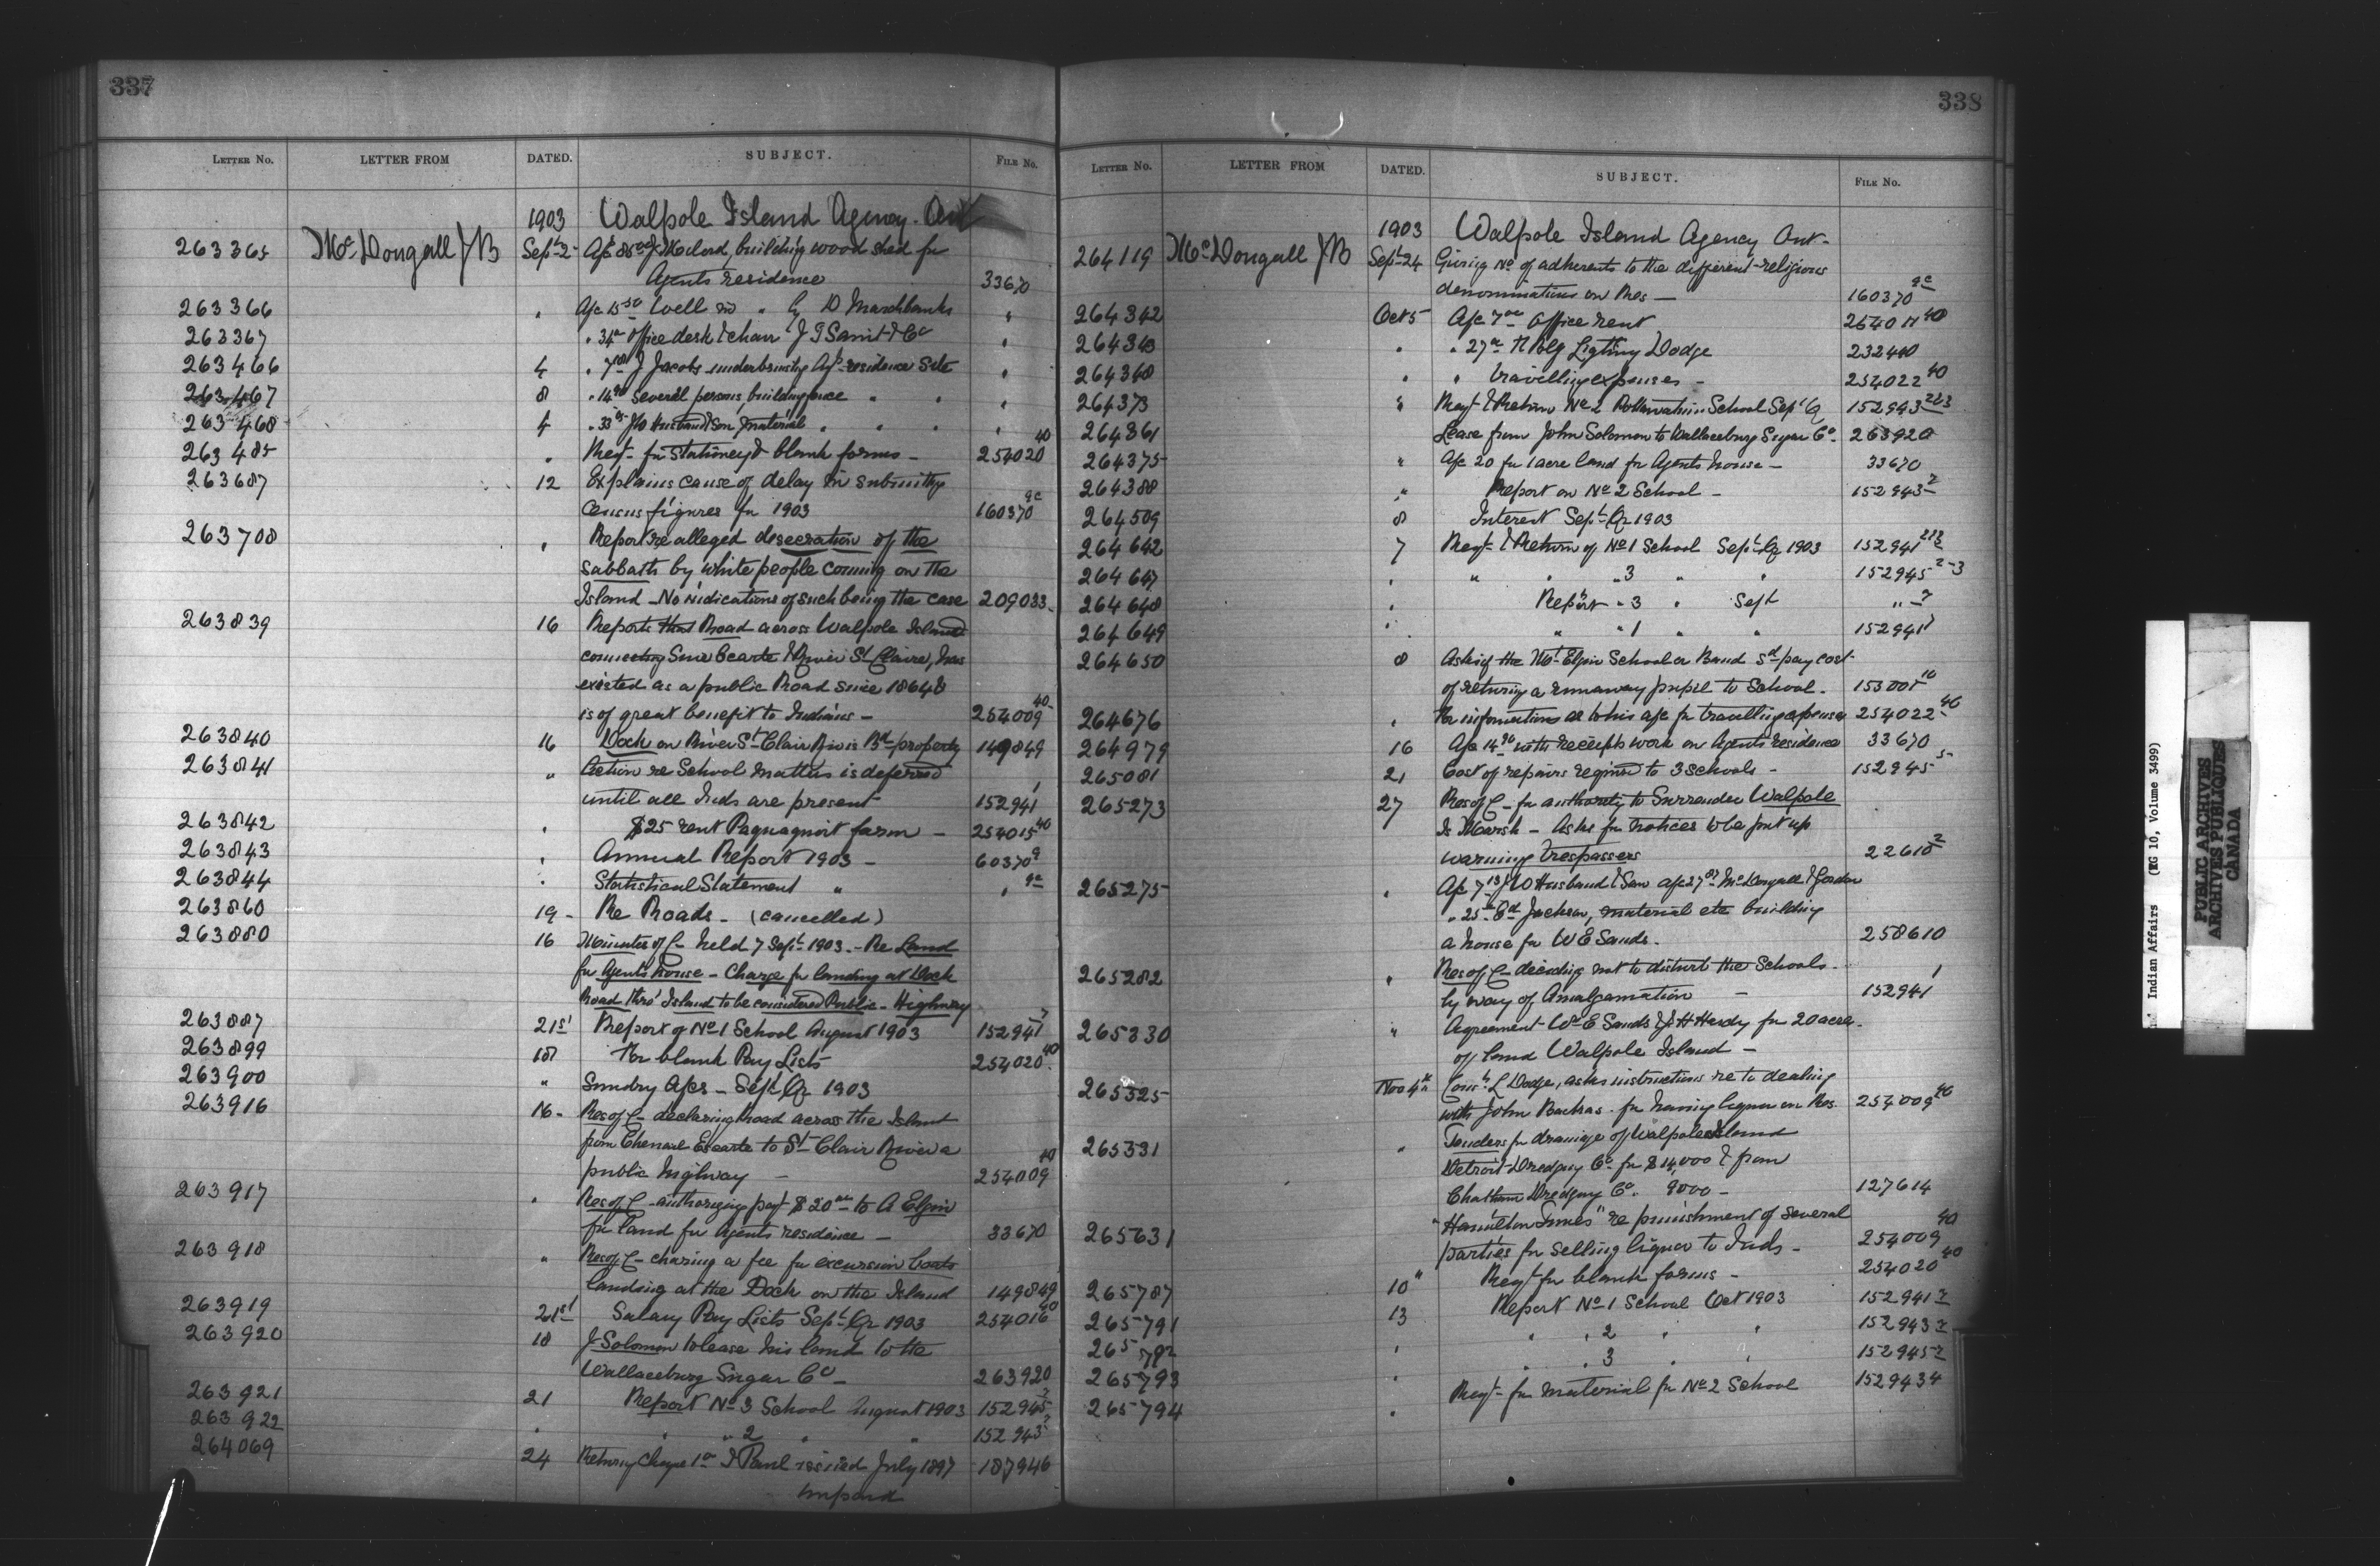 337
LETTER NO. LETTER FROM DATED. SUBJECT. FILE NO.
1903 Walpole Island Agency. Ont
263365 McDougall J B Sept 2 building wood shed for
Agents residence 33670
263366 " Well D Marchbanks "
263367 office desk & chair "
263466 4 J Jacobs underbrushing residence Site "
263467 8 Several persons, building fence " " "
263468 4 Husband & Son Material " " " "
263485 " Reqt- for Stationery & blank forms - 254020 40
263687 12 Explains cause of delay in submitting
Census figures for 1903 160370 9c
263708 " Report re alleged desecration of the
Sabbath by white people coming on the
Island - No indications of such being the case 209033
263839 16 Reports that Road across Walpole Island
connecting & River St Claire, has
existed as a public Road since 1864 &
is of great benefit to Indians - 254009 40
263840 16 Dock on River St Clair Riv is Bd property 149849
263841 " Action re School matters is deferred
until all Inds are present 152941 1
263842 " $25 rent farm - 254015 40
263843 " Annual Report 1903 - 60370 9
263844 " Statistical Statement " " 9c
263860 19 - Re Roads - (cancelled)
263880 16 Minutes of C- held 7 Sept 1903. - Re Land
for Agents house - Charge for landing at Dock
Road thro' Island to be considered Public - Highway
263887 21st Report of No 1 School August 1903 152941 7
263899 18 For blank Pay Lists 254020 40
263900 " Sundry Afcs - Sept Qr 1903
263916 16 - Res of C- declaring road across the Island
from Chenail Ecarte to St Clair River a
public highway - 254009 40
263917 " Res of C- authorizing payt $20 to A Elgin
for land for Agents residence - 33670
263918 " Res of C- charing a fee for excursion boats
landing at the Dock on the Island 149849
263919 21st Salary Pay Lists Sept Qr 1903 254016 40
263920 18 J Solomon to lease his land to the
Wallaceburg Sugar Co - 263920
263921 21 Report No 3 School August 1903 152945 2
263922 " " " 2 " " 152943 2
264069 24 Returning Cheque issued July 1897 187946
unpaid
338
LETTER NO. LETTER FROM DATED. SUBJECT. FILE NO.
1903 Walpole Island Agency Ont-
264119 McDougall J B Sept 24 Giving No of adherents to the different religious
denominations on Res - 160370 9c
264342 Oct 5 Afc 7 office rent 40
264343 " " 27 Dodge 232440
264348 " " travelling expenses - 254022 40
264373 " Reqt & Return No 2 School Sept Q 152943 2&3
264361 Lease from John Solomon to Wallaceburg Sugar Co - 263920
264375 " Afc 20 for 1 acre land for Agents house - 33670
264388 " Report on No 2 School - 152943 2
264509 8 Interest Sept Qr 1903
264642 7 Reqt & Return of No 1 School Sept Qr 1903 152941 2&3
264647 " " " " 3 " " 152945 2-3
264648 " Report " 3 " Sept " - 2
264649 " " " 1 " " 152941
264650 8 Asks if the Mt Elgin School or Band sd pay cost
of returning a runaway pupil to School - 153001 10
264676 " For information as to his afc for travelling expenses 254022 40
264979 16 Afc 14 with receipts work on Agents residence 33670
265081 21 Cost of repairs required to 3 schools - 152945 5
265273 27 Res of C- for authority to Surrender Walpole
Is Marsh - Asks for notices to be put up
warning trespassers 22618 2
265275 " Afc 7 J W Husband & Son afc 27 McDougall & Gordon
" 25 Ed Jackson, material etc building
a house for W E Sands. 258610
265282 " Res of C- deciding not to disturb the Schools -
by way of Amalgamation - 152941 1
265330 " Agreement Wm E Sands & J H Hardy for 20 acres
of land Walpole Island -
265325 Nov 4th L Dodge, asks instructions re to dealing
with John Backras. for having liquor on Res. 254009 40
265331 " Tenders for drainage of Walpole Island
Detroit Dredging Co - for $14,000 & from
Chatham Dredging Co. 9000 - 127614
265631 "Hamilton Times" re punishment of several
parties for selling liquor to Inds - 254009 40
265787 10" Reqt for blank forms - 254020 40
265791 13 Report No 1 School Oct 1903 152941 2
265792 " " " 2 " " 152943 2
265793 " " " 3 " " 152945 2
265794 " Reqt - for material for No 2 School 152943 4
Indian Affairs (RG 10, Volume 3499)
PUBLIC ARCHIVES
ARCHIVES PUBLIQUES
CANADA